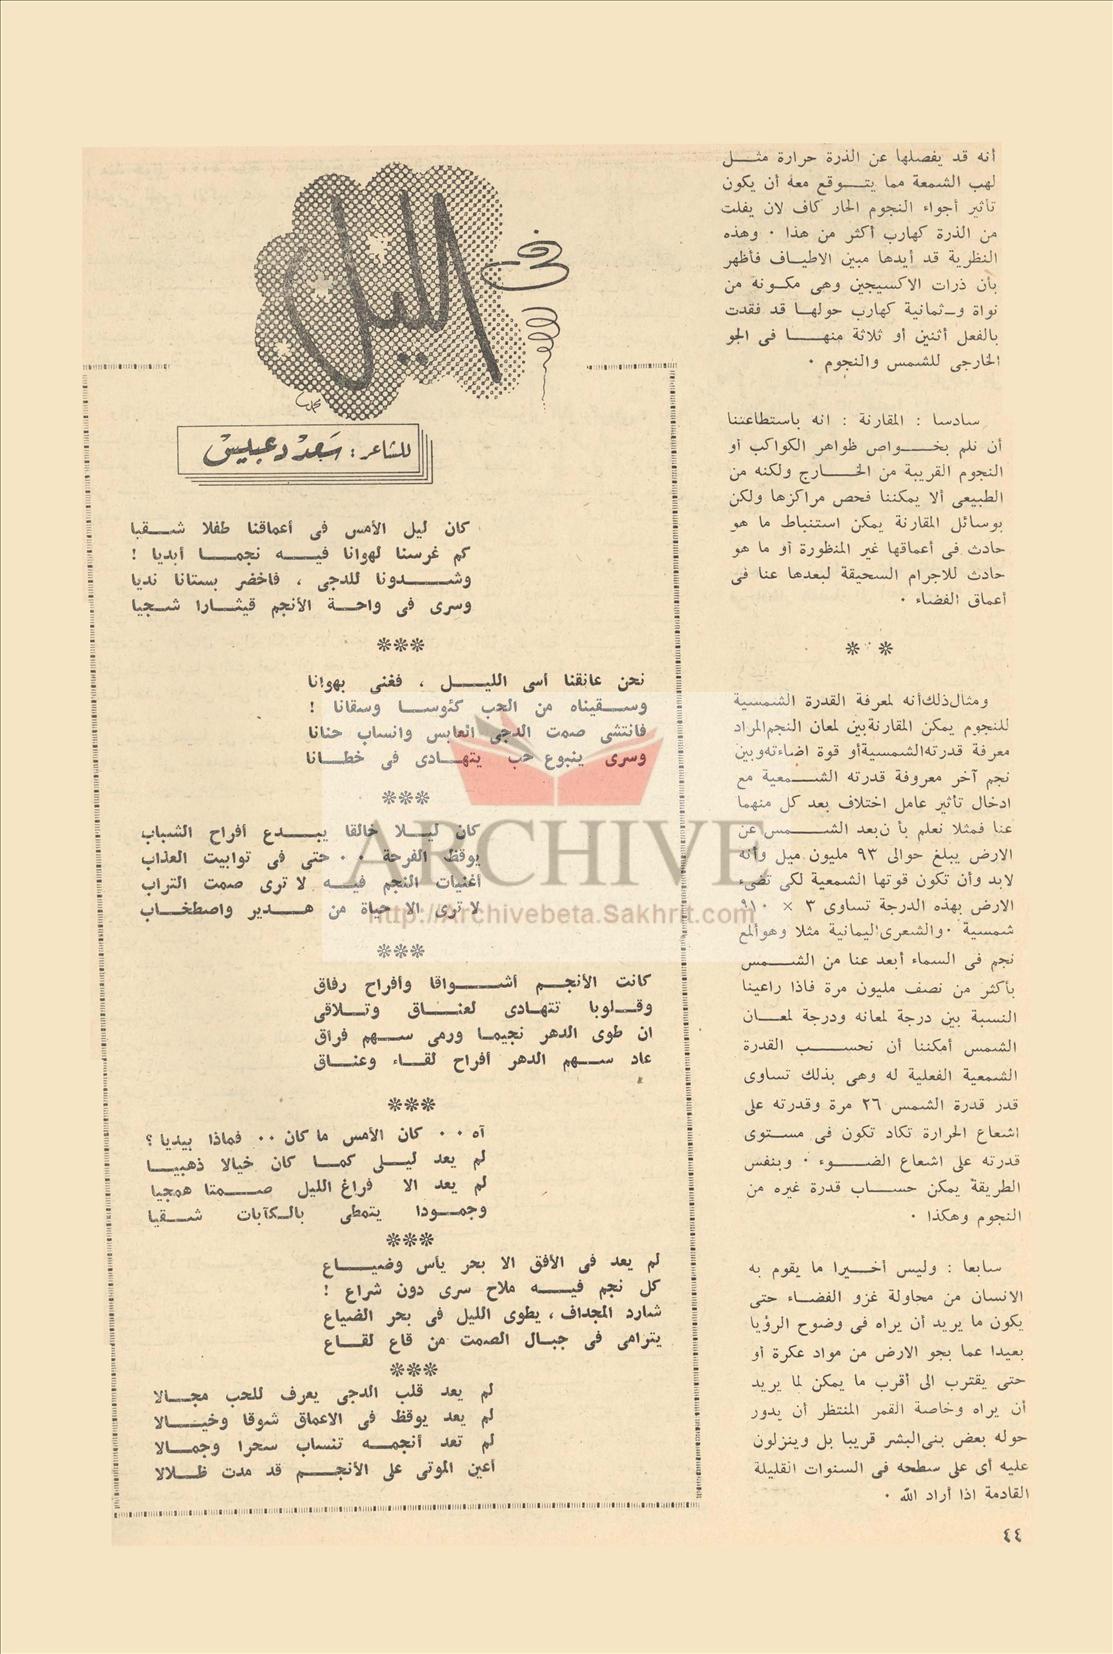 أنه قد يفصلها عن الذرة حرارة مثل
لهب الشمعة مما يتوقع معه أن يكون
تأثير أجواء النجوم الحار كاف لان يفلت
من الذرة كهارب أكثر من هذا . وهذه
النظرية قد أيدها مبين الاطياف فأظهر
بأن ذرات الاكسيجين وهى مكونة من
نواة و-ثمانية كهارب حولها قد فقدت
بالفعل أثنين أو ثلاثة منها فى الجو
الخارجى للشمس والنجوم .
سادسا : المقارنة : انه باستطاعتنا
أن نلم بخواص ظواهر الكواكب أو
النجوم القريبة من الخارج ولكنه من
الطبيعى ألا يمكننا فحص مراكزها ولكن
بوسائل المقارنة يمكن استنباط ما هو
حادث فى أعماقها غير المنظورة أو ما هو
حادث للاجرام السحيقة لبعدها عنا فى
أعماق الفضاء .
* *
ومثال ذلك أنه لمعرفة القدرة الشمسية
للنجوم يمكن المقارنة بين لمعان النجم المراد
معرفة قدرته الشمسية أو قوة اضاءته وبين
نجم آخر معروفة قدرته الشمعية مع
ادخال تأثير عامل اختلاف بعد كل منهما
عنا فمثلا نعلم بأن بعد الشمس عن
الارض يبلغ حوالى ٩٣ مليون ميل وأنه
لابد وأن تكون قوتها الشمعية لكى تضىء
الارض بهذه الدرجة تساوى ٣ × ٩١٠
شمسية . والشعرى اليمانية مثلا وهو ألمع
نجم فى السماء أبعد عنا من الشمس
بأكثر من نصف مليون مرة فاذا راعينا
النسبة بين درجة لمعانه ودرجة لمعان
الشمس أمكننا أن نحسب القدرة
الشمعية الفعلية له وهى بذلك تساوى
قدر قدرة الشمس ٢٦ مرة وقدرته على
اشعاع الحرارة تكاد تكون فى مستوى
قدرته على اشعاع الضوء . وبنفس
الطريقة يمكن حساب قدرة غيره من
النجوم وهكذا .
سابعا : وليس أخيرا ما يقوم به
الانسان من محاولة غزو الفضاء حتى
يكون ما يريد أن يراه فى وضوح الرؤيا
بعيدا عما بجو الارض من مواد عكرة أو
حتى يقترب الى أقرب ما يمكن لما يريد
أن يراه وخاصة القمر المنتظر أن يدور
حوله بعض بنى البشر قريبا بل وينزلون
عليه أى على سطحه فى السنوات القليلة
القادمة اذا أراد الله .
فى الليل
للشاعر : سعد دعبيس
كان ليل الأمس فى أعماقنا طفلا شقيا
كم غرسنا لهوانا فيه نجما أبديا !
وشدونا للدجى ، فاخضر بستانا نديا
وسرى فى واحة الأنجم قيثارا شجيا
***
نحن عانقنا أسى الليل ، فغنى بهوانا
وسقيناه من الحب كئوسا وسقانا !
فانتشى صمت الدجى العابس وانساب حنانا
وسرى ينبوع حب يتهادى فى خطانا
***
كان ليلا خالقا يبدع أفراح الشباب
يوقظ الفرحة .. حتى فى توابيت العذاب
أغنيات النجم فيه لا ترى صمت التراب
لا ترى الا حياة من هدير واصطخاب
***
كانت الأنجم أشواقا وأفراح رفاق
وقلوبا تتهادى لعناق وتلاقى
ان طوى الدهر نجيما ورمى سهم فراق
عاد سهم الدهر أفراح لقاء وعناق
***
آه .. كان الأمس ما كان .. فماذا بيديا ؟
لم يعد ليلى كما كان خيالا ذهبيا
لم يعد الا فراغ الليل صمتا همجيا
وجمودا يتمطى بالكآبات شقيا
***
لم يعد فى الأفق الا بحر يأس وضياع
كل نجم فيه ملاح سرى دون شراع !
شارد المجداف ، يطوى الليل فى بحر الضياع
يترامى فى جبال الصمت من قاع لقاع
***
لم يعد قلب الدجى يعرف للحب مجالا
لم يعد يوقظ فى الاعماق شوقا وخيالا
لم تعد أنجمه تنساب سحرا وجمالا
أعين الموتى على الأنجم قد مدت ظلالا
٤٤
ARCHIVE
http://Archivebeta.Sakhrit.com